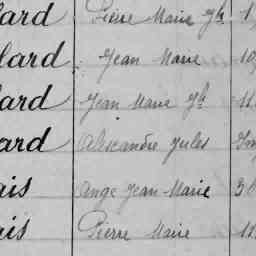 lard Pierre Marie
lard Jean Marie
lard Jean Marie
lard Alexandre Jules
ais Ange Jean Marie
ais Pierre Marie